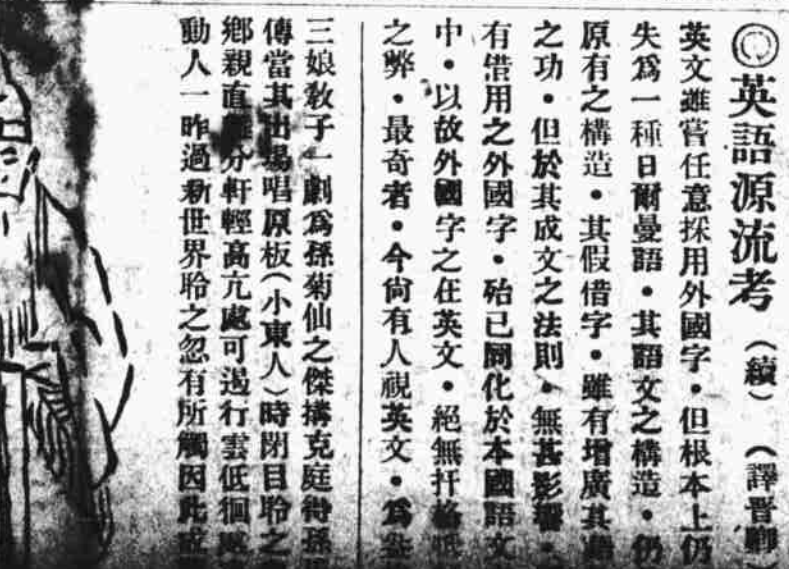 ◎英語源流考（續）（譯晋卿）
英文雖嘗任意採用外國字・但根本上仍
失爲一種日爾曼語・其語文之構造・仍
原有之構造・其假借字・雖有增廣其
之功・但於其成文之法則・無甚影響・
有借用之外國字・殆已同化於本國語文
中・以故外國字之在英文・絕無扞格
之弊・最奇者・今尙有人視英文・爲
三娘敎子一劇爲孫菊仙之傑搆克庭得孫
傳當其出場唱原板（小東人）時閉目聆之
鄉親直 分軒輊高亢處可遏行雲低徊
動人一昨過新世界聆之忽有所觸因此